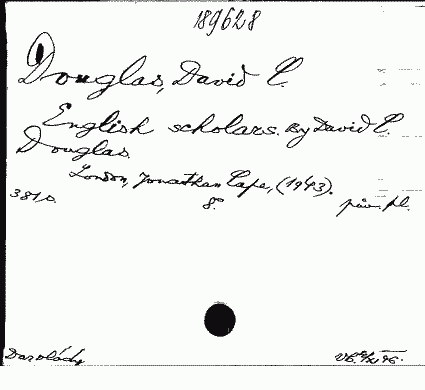 189628
Douglas, David C.
English scholars. By David C.
Douglas.
London, Jonathan Cape, (1943).
381 p. 8°. püv. pl.
Darolády